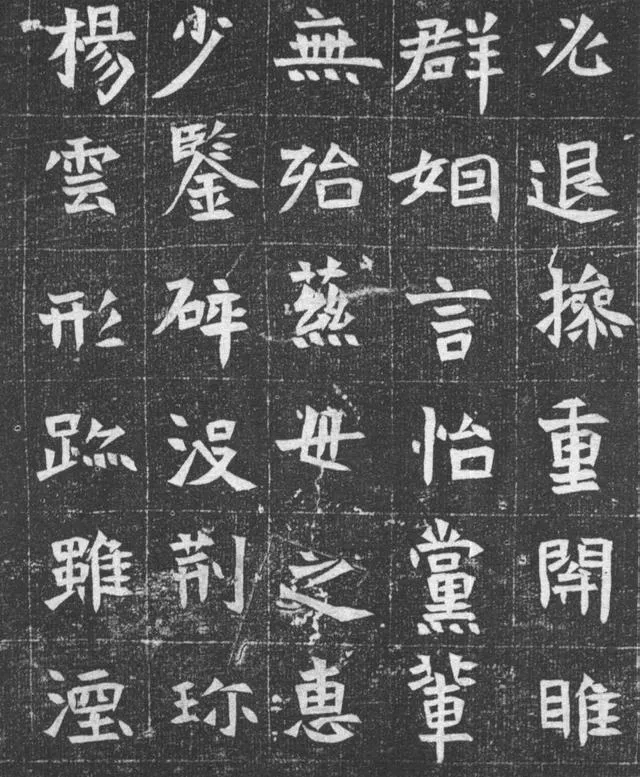 必退操重開睢
群姻言怡黨輩
無殆蒸毋之恵
少鑒碎没荆珎
楊雲形跡雖湮